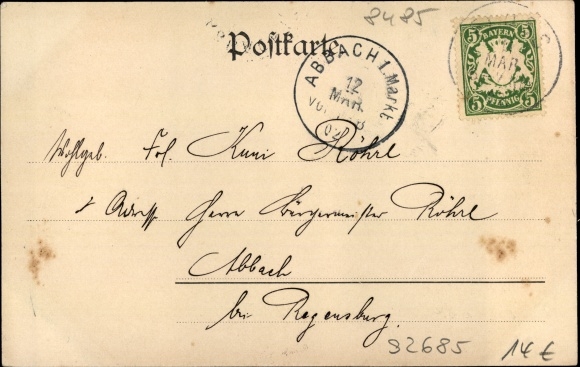 8485
Postkarte
ABBACH 1. Markt
12
MAR.
VOR. 8
02
MAR
BAYERN
5 5
5 PFENNIG 5
Wohlgeb. Frl. Kuni Röhrl
Adresse Herrn Bürgermeister Röhrl
Abbach
bei Regensburg.
92685
14 €